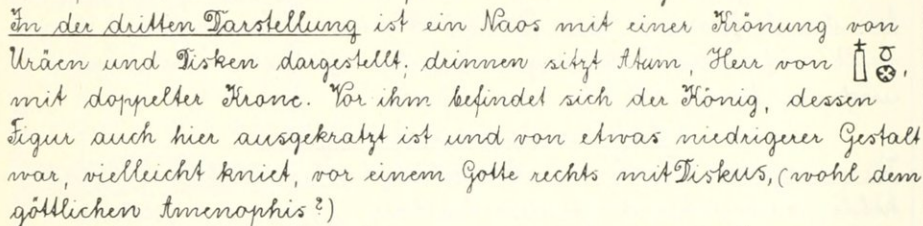 In der dritten Darstellung ist ein Naos mit einer Krönung von
Uräen und Disken dargestellt; drinnen sitzt Atum, Herr von 𓉺𓏌𓊖,
mit doppelter Krone. Vor ihm befindet sich der König, dessen
Figur auch hier ausgekratzt ist und von etwas niedrigerer Gestalt
war, vielleicht kniet, vor einem Gotte rechts mit Diskus, (wohl dem
göttlichen Amenophis?)